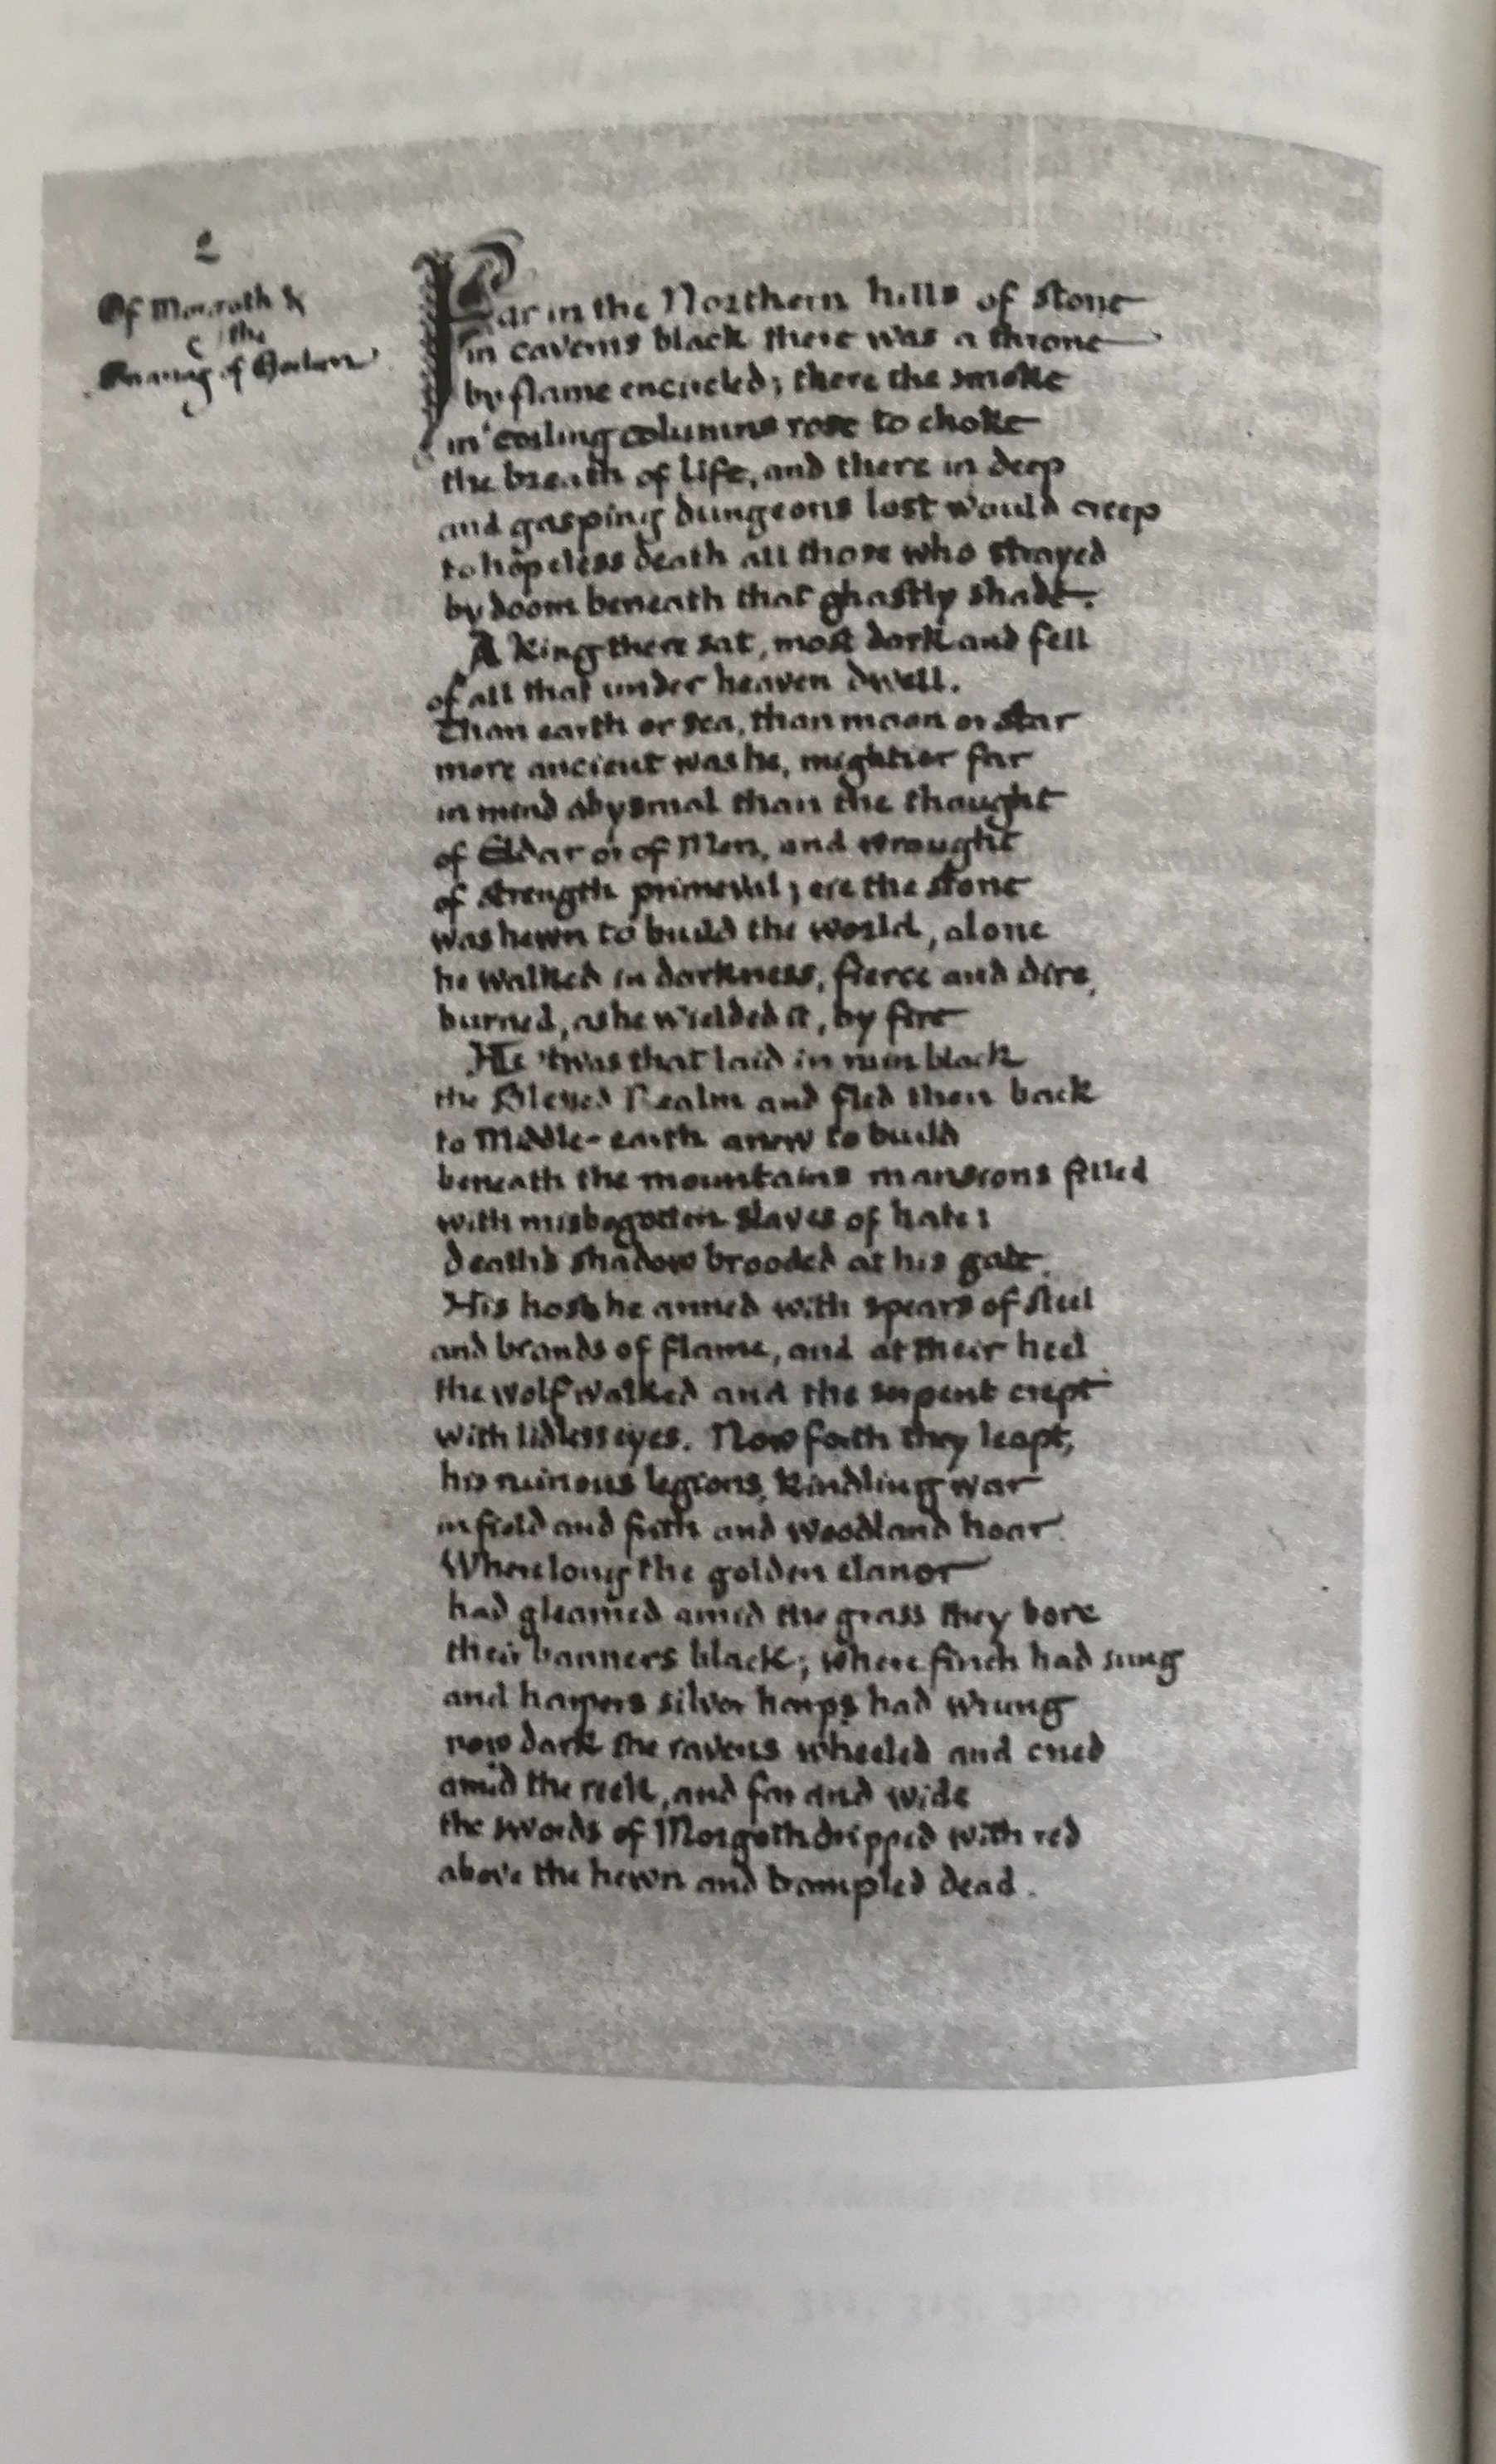 2
Of Morgoth &
the
Snaring of Gorlim
Far in the Northern hills of stone
in caverns black there was a throne
by flame encircled; there the smoke
in coiling columns rose to choke
the breath of life, and there in deep
and gasping dungeons lost would creep
to hopeless death all those who strayed
by doom beneath that ghastly shade.
A King there sat, most dark and fell
of all that under heaven dwell.
Than earth or sea, than moon or star
more ancient was he, mightier far
in mind abysmal than the thought
of Eldar or of Men, and wrought
of strength primeval; ere the stone
was hewn to build the world, alone
he walked in darkness, fierce and dire,
burned, as he wielded it, by fire
He 'twas that laid in ruin black
the Blessed Realm and fled then back
to Middle-earth anew to build
beneath the mountains mansions filled
with misbegotten slaves of hate:
death's shadow brooded at his gate.
His hosts he armed with spears of steel
and brands of flame, and at their heel
the wolf walked and the serpent crept
with lidless eyes. Now forth they leapt,
his ruinous legions, kindling war
in field and frith and woodland hoar.
Where long the golden elanor
had gleamed amid the grass they bore
their banners black; where finch had sung
and harpers silver harps had wrung
now dark the ravens wheeled and cried
amid the reek, and far and wide
the swords of Morgoth dripped with red
above the hewn and trampled dead.